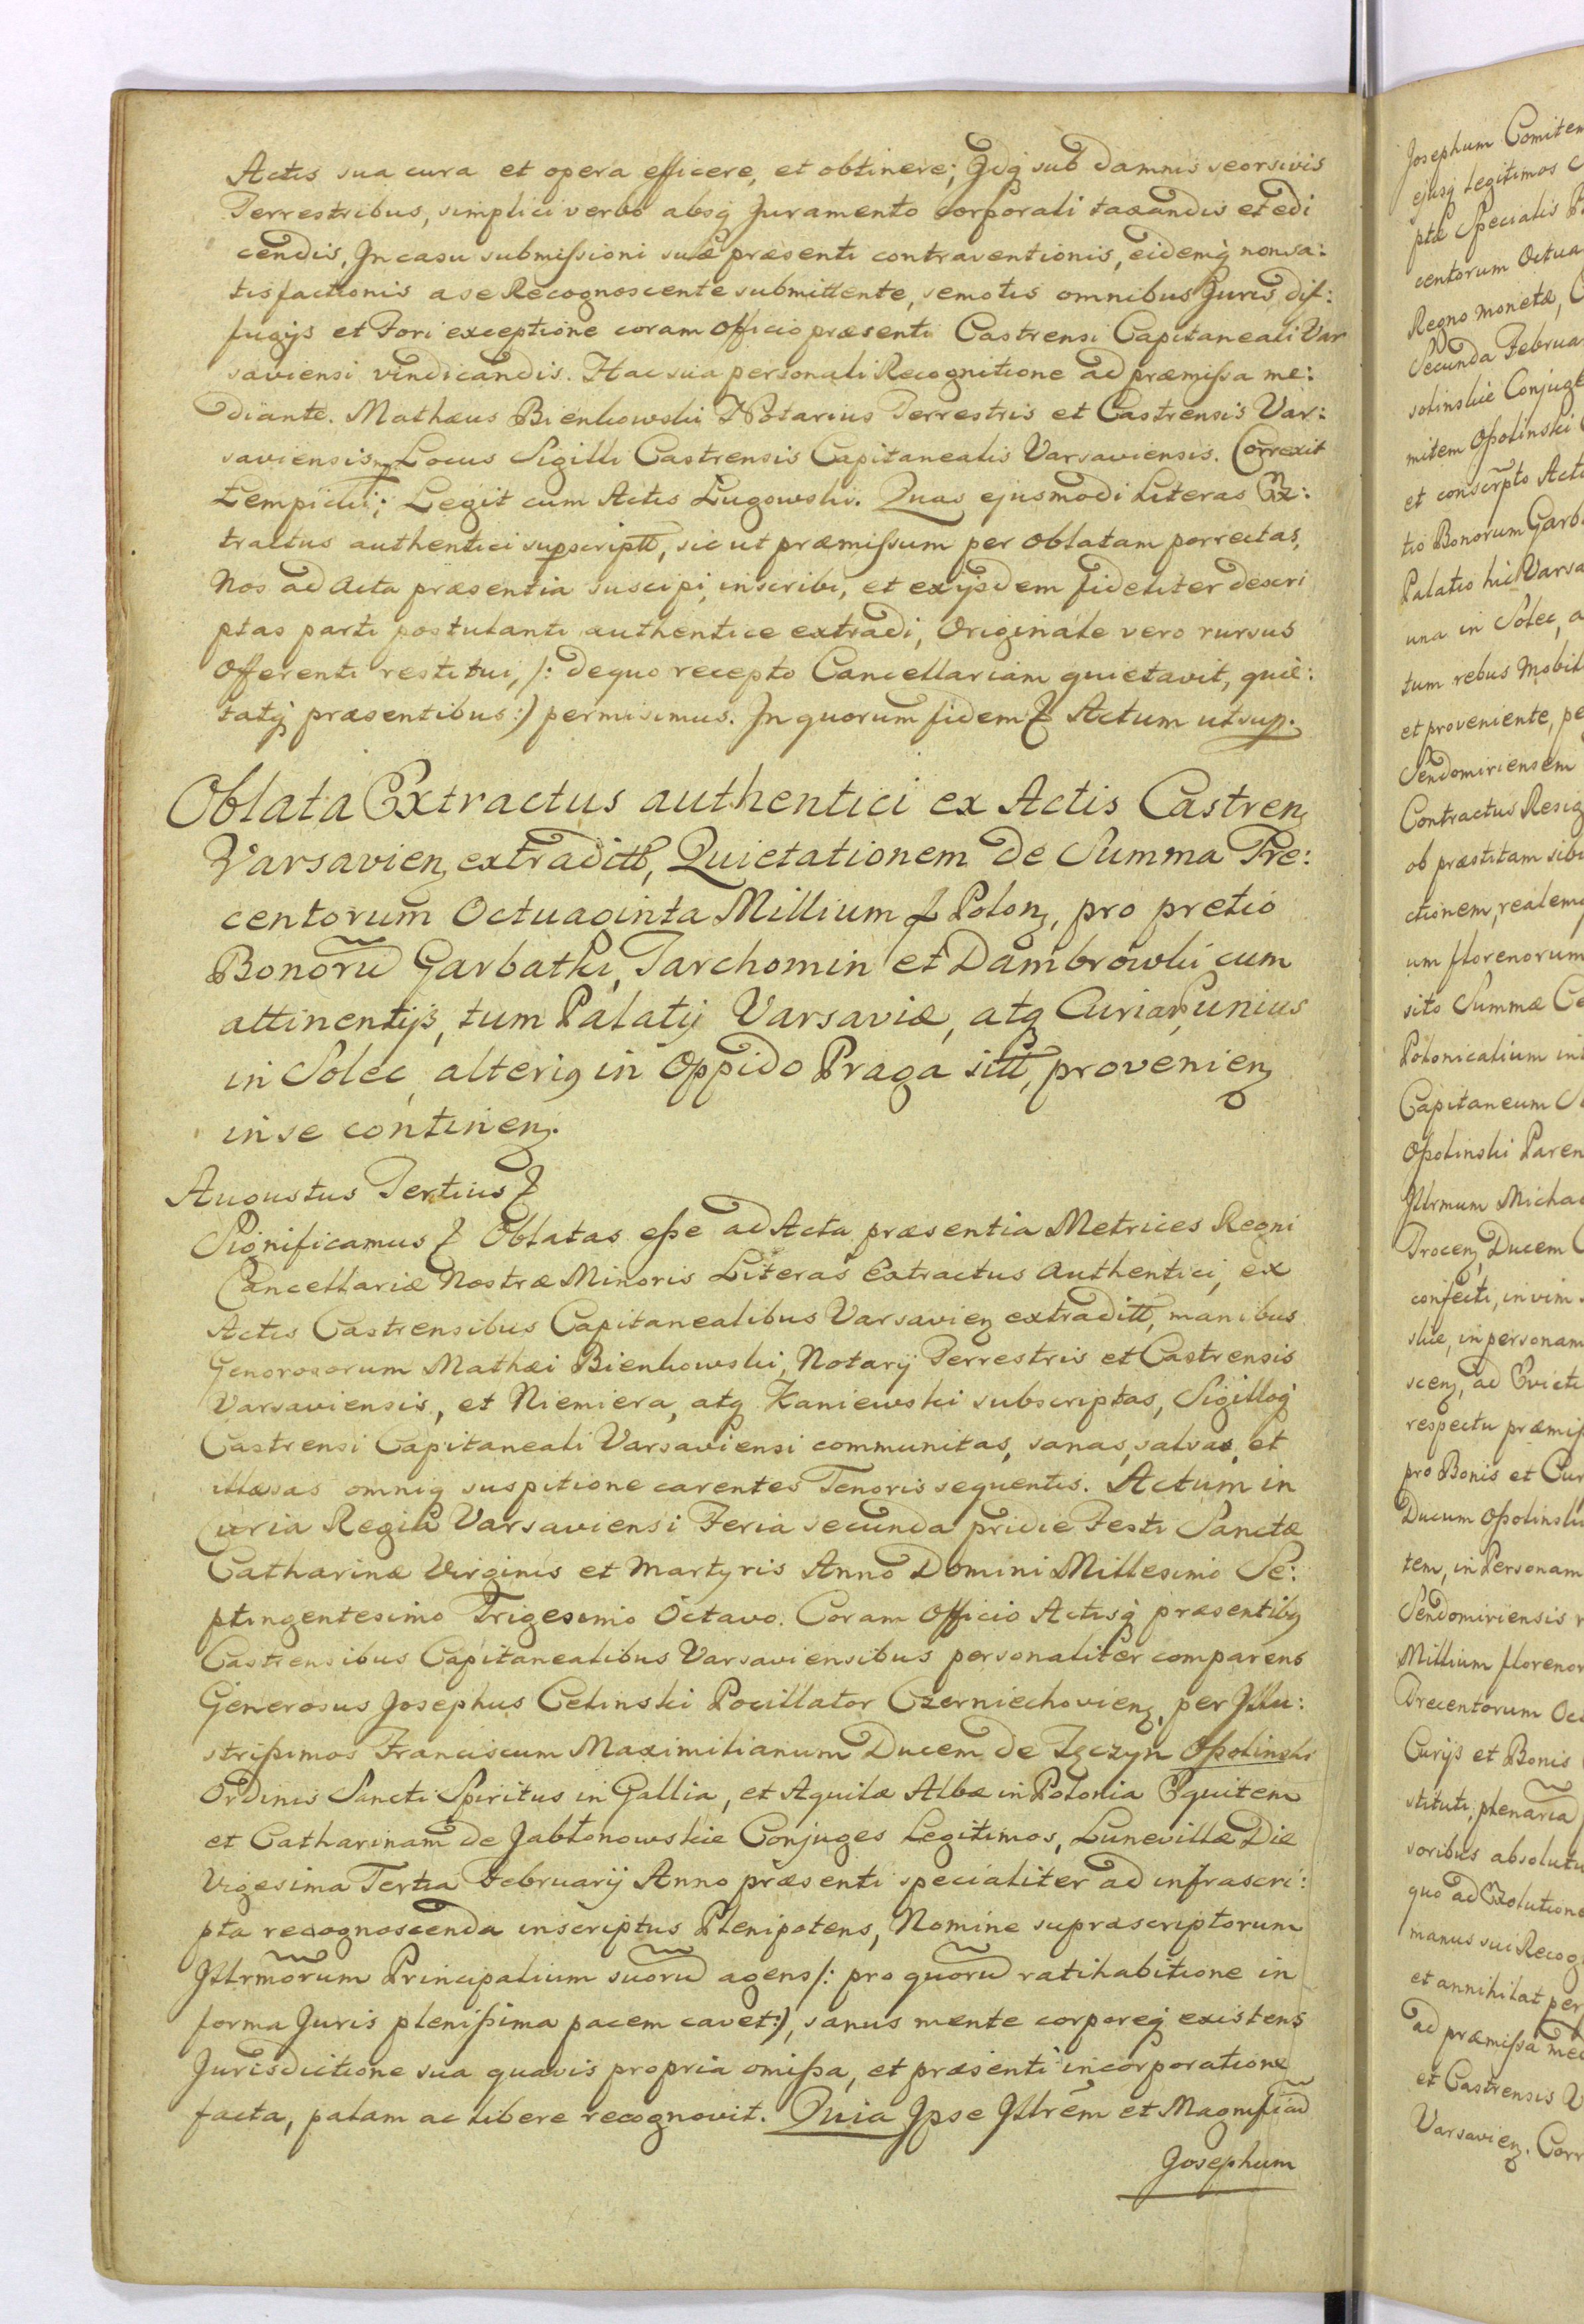 Actis sua cura et opera efficere, et obtinere; Idq sub damnis seorsivis
Terrestribus, simplici verbo absq Juramento corporali taxandis et edi
cendis, In casu submissioni suæ præsenti contraventionis, eidemq non sa:
tisfactionis a se Recognoscente submittente, semotis omnibus Juris dif:
fugijs et Fori exceptione coram Officio præsenti Castrensi Capitaneali Var
saviensi vindicandis. Hac sua personali Recognitione ad præmissa me:
diante. Mathæus Bienkowski Notarius Terrestris et Castrensis Var:
saviensis Locus Sigilli Castrensis Capitanealis Varsaviensis. Correxit
Łempicki; Legit cum Actis Ługowski. Quas ejusmodi Literas Ex:
tractus authentici supscriptt, sic ut præmissum per Oblatam porrectas,
Nos ad Acta præsentia suscipi, inscribi, et ex ijsdem fideliter descri
ptas parti postulanti authentice extradi, Originale vero rursus
Offerenti restitui, /: de quo recepto Cancellariam quietavit, quie:
tatq præsentibus :/ permisimus. In quorum fidem Actum ut sup.
Oblata Extractus authentici ex Actis Castren
Varsavien extraditt, Quietationem de Summa Tre:
centorum Octuaginta Millium f Polon, pro pretio
Bonorũ Garbatki, Tarchomin et Dambrowki cum
attinentijs, tum Palatij Varsaviæ, atq Curiar, unius
in Solec, alteriq in Oppido Praga sitt, provenien
in se continen.
Augustus Tertius
Significamus Oblatas esse ad Acta præsentia Metrices Regni
Cancellariæ Nostræ Minoris Literas Extractus Authentici, ex
Actis Castrensibus Capitanealibus Varsavien extraditt, manibus
Generosorum Mathæi Bienkowski, Notarij Terrestris et Castrensis
Varsaviensis, et Niemiera, atq Kaniewski subscriptas, Sigilloq
Castrensi Capitaneali Varsaviensi communitas, sanas, salvas, et
illæsas omniq suspitione carentes Tenoris sequentis. Actum in
Curia Regia Varsaviensi Feria secunda pridie Festi Sanctæ
Catharinæ Virginis et Martyris Anno Domini Millesimo Se:
ptingentesimo Trigesimo Octavo. Coram Officio Actisq præsentibq
Castrensibus Capitanealibus Varsaviensibus personaliter comparens
Generosus Josephus Celinski Pocillator Czerniechovien, per Illu:
strissimos Franciscum Maximilianum Ducem de Tęczyn Ossolinski
Ordinis Sancti Spiritus in Gallia, et Aquilæ Albæ in Polonia Equitem
et Catharinam de Jabłonowskie Conjuges Legitimos, Lunevillæ Die
Vigesima Tertia Februarij Anno præsenti specialiter ad infrascri:
pta recognoscenda inscriptus Plenipotens, Nomine supræscriptorum
Illrmorum Principalium suorũ agens /: pro quorũ ratihabitione in
forma Juris plenissima pacem cavet :/, sanus mente corporeq existens
Jurisdictione sua quavis propria omissa, et præsenti incorporatione
facta, palam ac libere recognovit. Quia Ipse Illrem et Magnificũ
Josephum
Josephum Comitem
ejusq Legitimos
ptæ Specialis
centorum Octua
Regno monetæ,
Secunda Februa
solinskie Conjuge
mitem Ossolinski
et conscrpto Acti
tio Bonorum Garb
Palatio hic Varsa
una in Solec, a
tum rebus Mobil
et proveniente, pe
Sendomiriensem
Contractus Resig
ob præstitam sibi
ctionem, realemq
um florenorum
sito Summæ Ce
Polonicalium in
Capitaneum
Ossolinski Paren
Illrmum Michae
Trocen, Ducem
confecti, in vim
skie, in personam
scen, ad Evicti
respectu præmis
pro Bonis et Cur
Ducum Ossolinski
tem, in Personam
Sendomiriensis
Millium florenor
Trecentorum Oc
Curijs et Bonis
stituti, plenaria
soribus absolut
quo ad Exolutione
manus sui Recog
et annihilat per
ad præmissa med
et Castrensis V
Varsavien. Corr